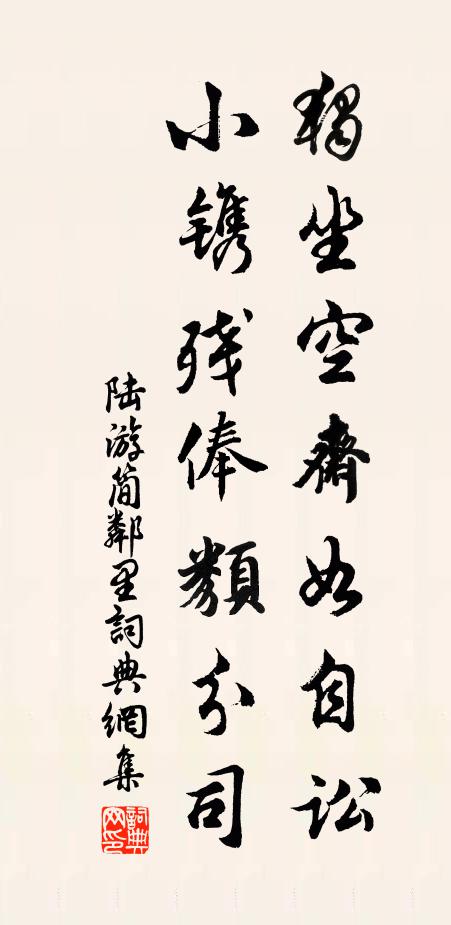 獨坐空齋如自訟
小镌殘俸類分司
陆游简鄰里詞典網集
詞典网印